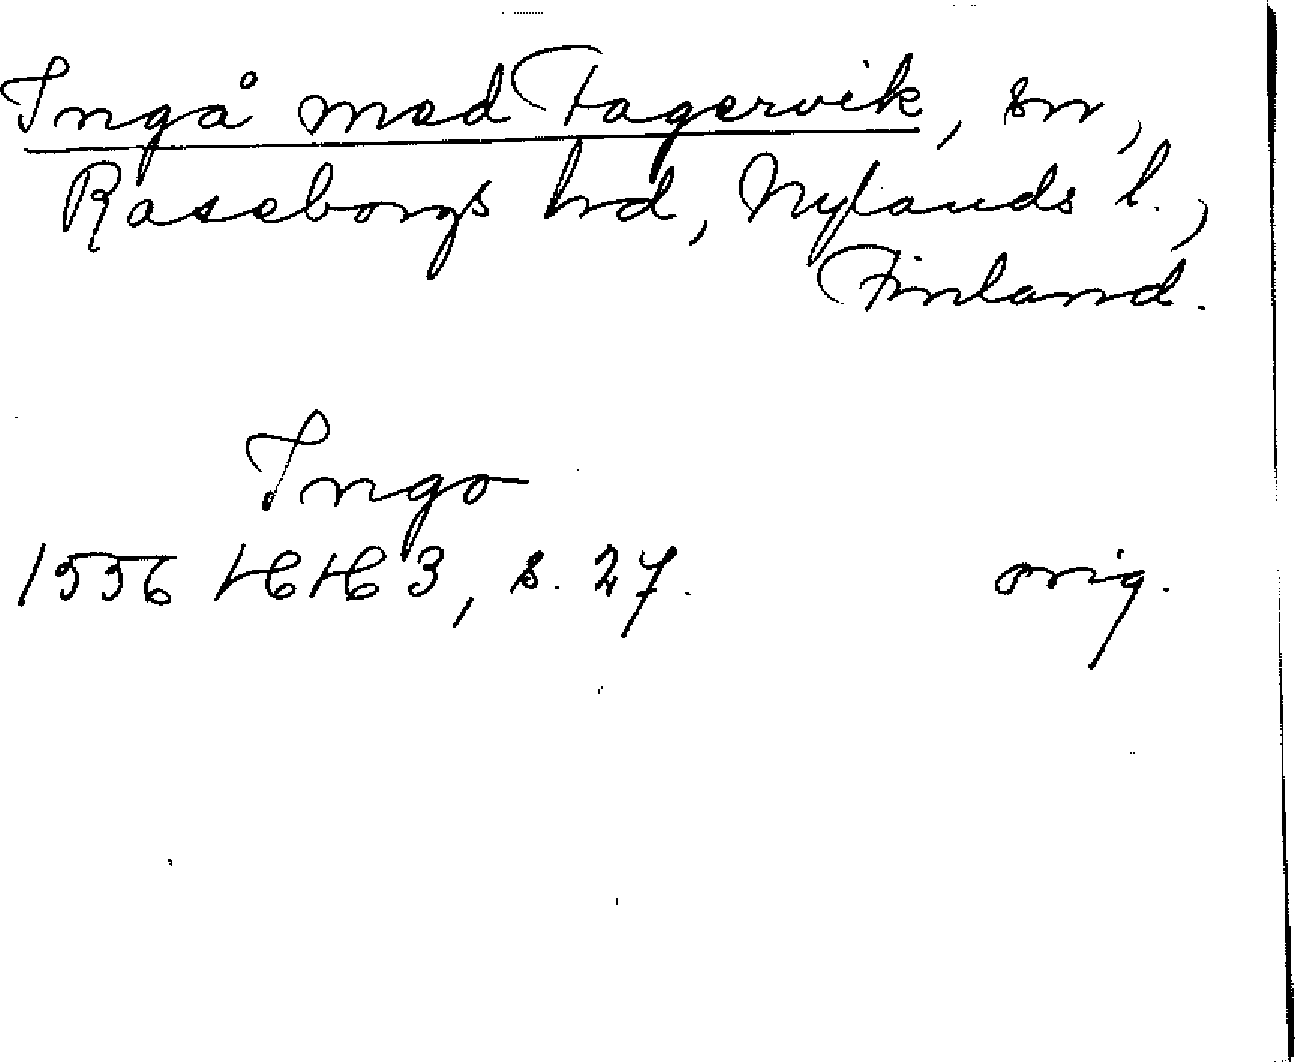 Ingå med Fagervik, sn,
Raseborgs hrd, Nylands l.,
Finland.
Ingo
1556 HH 3, s. 27.
orig.